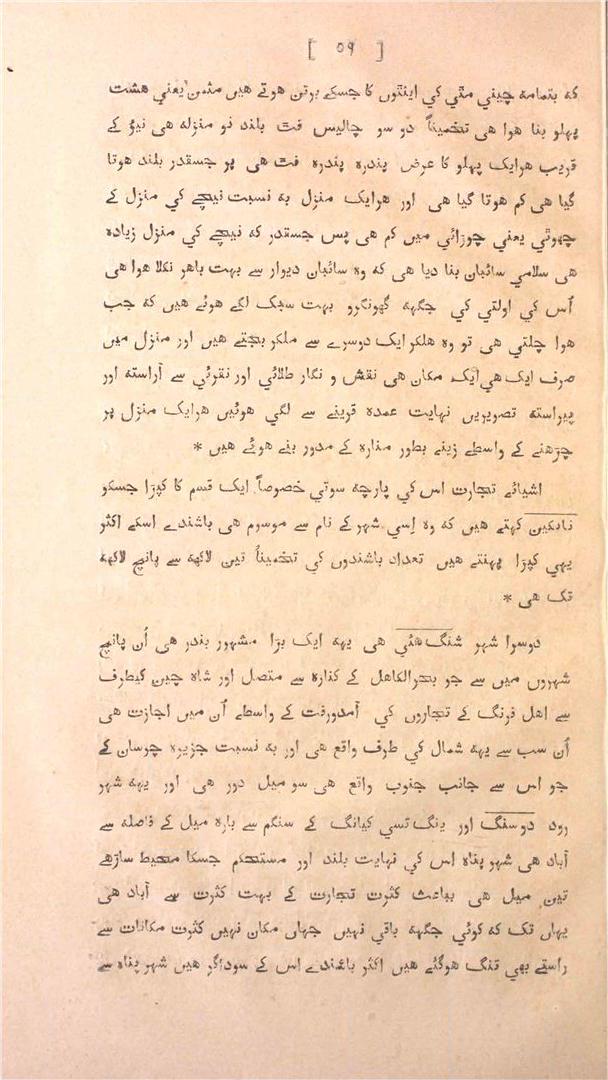 [ ٥٩ ]
که بتمامه چیني مٿي کي اینٿوں کا جسکے برتن هوتے هیں مثمن یعني هشت
پهلو بنا هوا هی تخمیناً دو سو چالیس فت بلند نو منزله هی نیؤ کے
قریب هرایک پهلو کا عرض پندره پندره فت هی پر جسقدر بلند هوتا
گیا هی کم هوتا گیا هی اور هرایک منزل به نسبت نیچے کي منزل کے
چهوٿي یعني چوڑائي میں کم هی پس جسقدر که نیچے کي منزل زیاده
هی سلامي سائبان بنا دیا هی که وه سائبان دیوار سے بهت باهر نکلا هوا هی
اُس کي اولتي کي جگهه گهونگرو بهت سبک لگے هوئے هیں که جب
هوا چلتي هی تو وه هلکر ایک دوسرے سے ملکر بجتے هیں اور منزل میں
صرف ایک هي ایک مکان هی نقش و نگار طلائي اور نقرئي سے آراسته اور
پیراسته تصویریں نهایت عمده قرینے سے لگي هوئیں هرایک منزل پر
چڑهنے کے واسطے زینے بطور مناره کے مدور بنے هوئے هیں *
اشیائے تجارت اس کي پارچه سوتي خصوصاً ایک قسم کا کپڑا جسکو
نانکین کهتے هیں که وه اِسي شهر کے نام سے موسوم هی باشندے اسکے اکثر
یهي کپڑا پهنتے هیں تعداد باشندوں کي تخمیناً تین لاکهه سے پانچ لاکهه
تک هی *
دوسرا شهر شنگ هئي هی یهه ایک بڑا مشهور بندر هی اُن پانچ
شهروں میں سے جو بحرالکاهل کے کناره سے متصل اور شاه چین کیطرف
سے اهل فرنگ کے تجاروں کي آمدورفت کے واسطے اُن میں اجازت هی
اُن سب سے یهه شمال کي طرف واقع هی اور به نسبت جزیره چوسان کے
جو اس سے جانب جنوب واقع هی سو میل دور هی اور یهه شهر
رود دوسنگ اور ینگ تسي کیانگ کے سنگم سے باره میل کے فاصله سے
آباد هی شهر پناه اس کي نهایت بلند اور مستحکم جسکا محیط ساڑهے
تین میل هی بباعث کثرت تجارت کے بهت کثرت سے آباد هی
یهاں تک که کوئي جگهه باقي نهیں جهاں مکان نهیں کثرت مکانات سے
راستے بهي تنگ هوگئے هیں اکثر باشندے اس کے سوداگر هیں شهر پناه سے